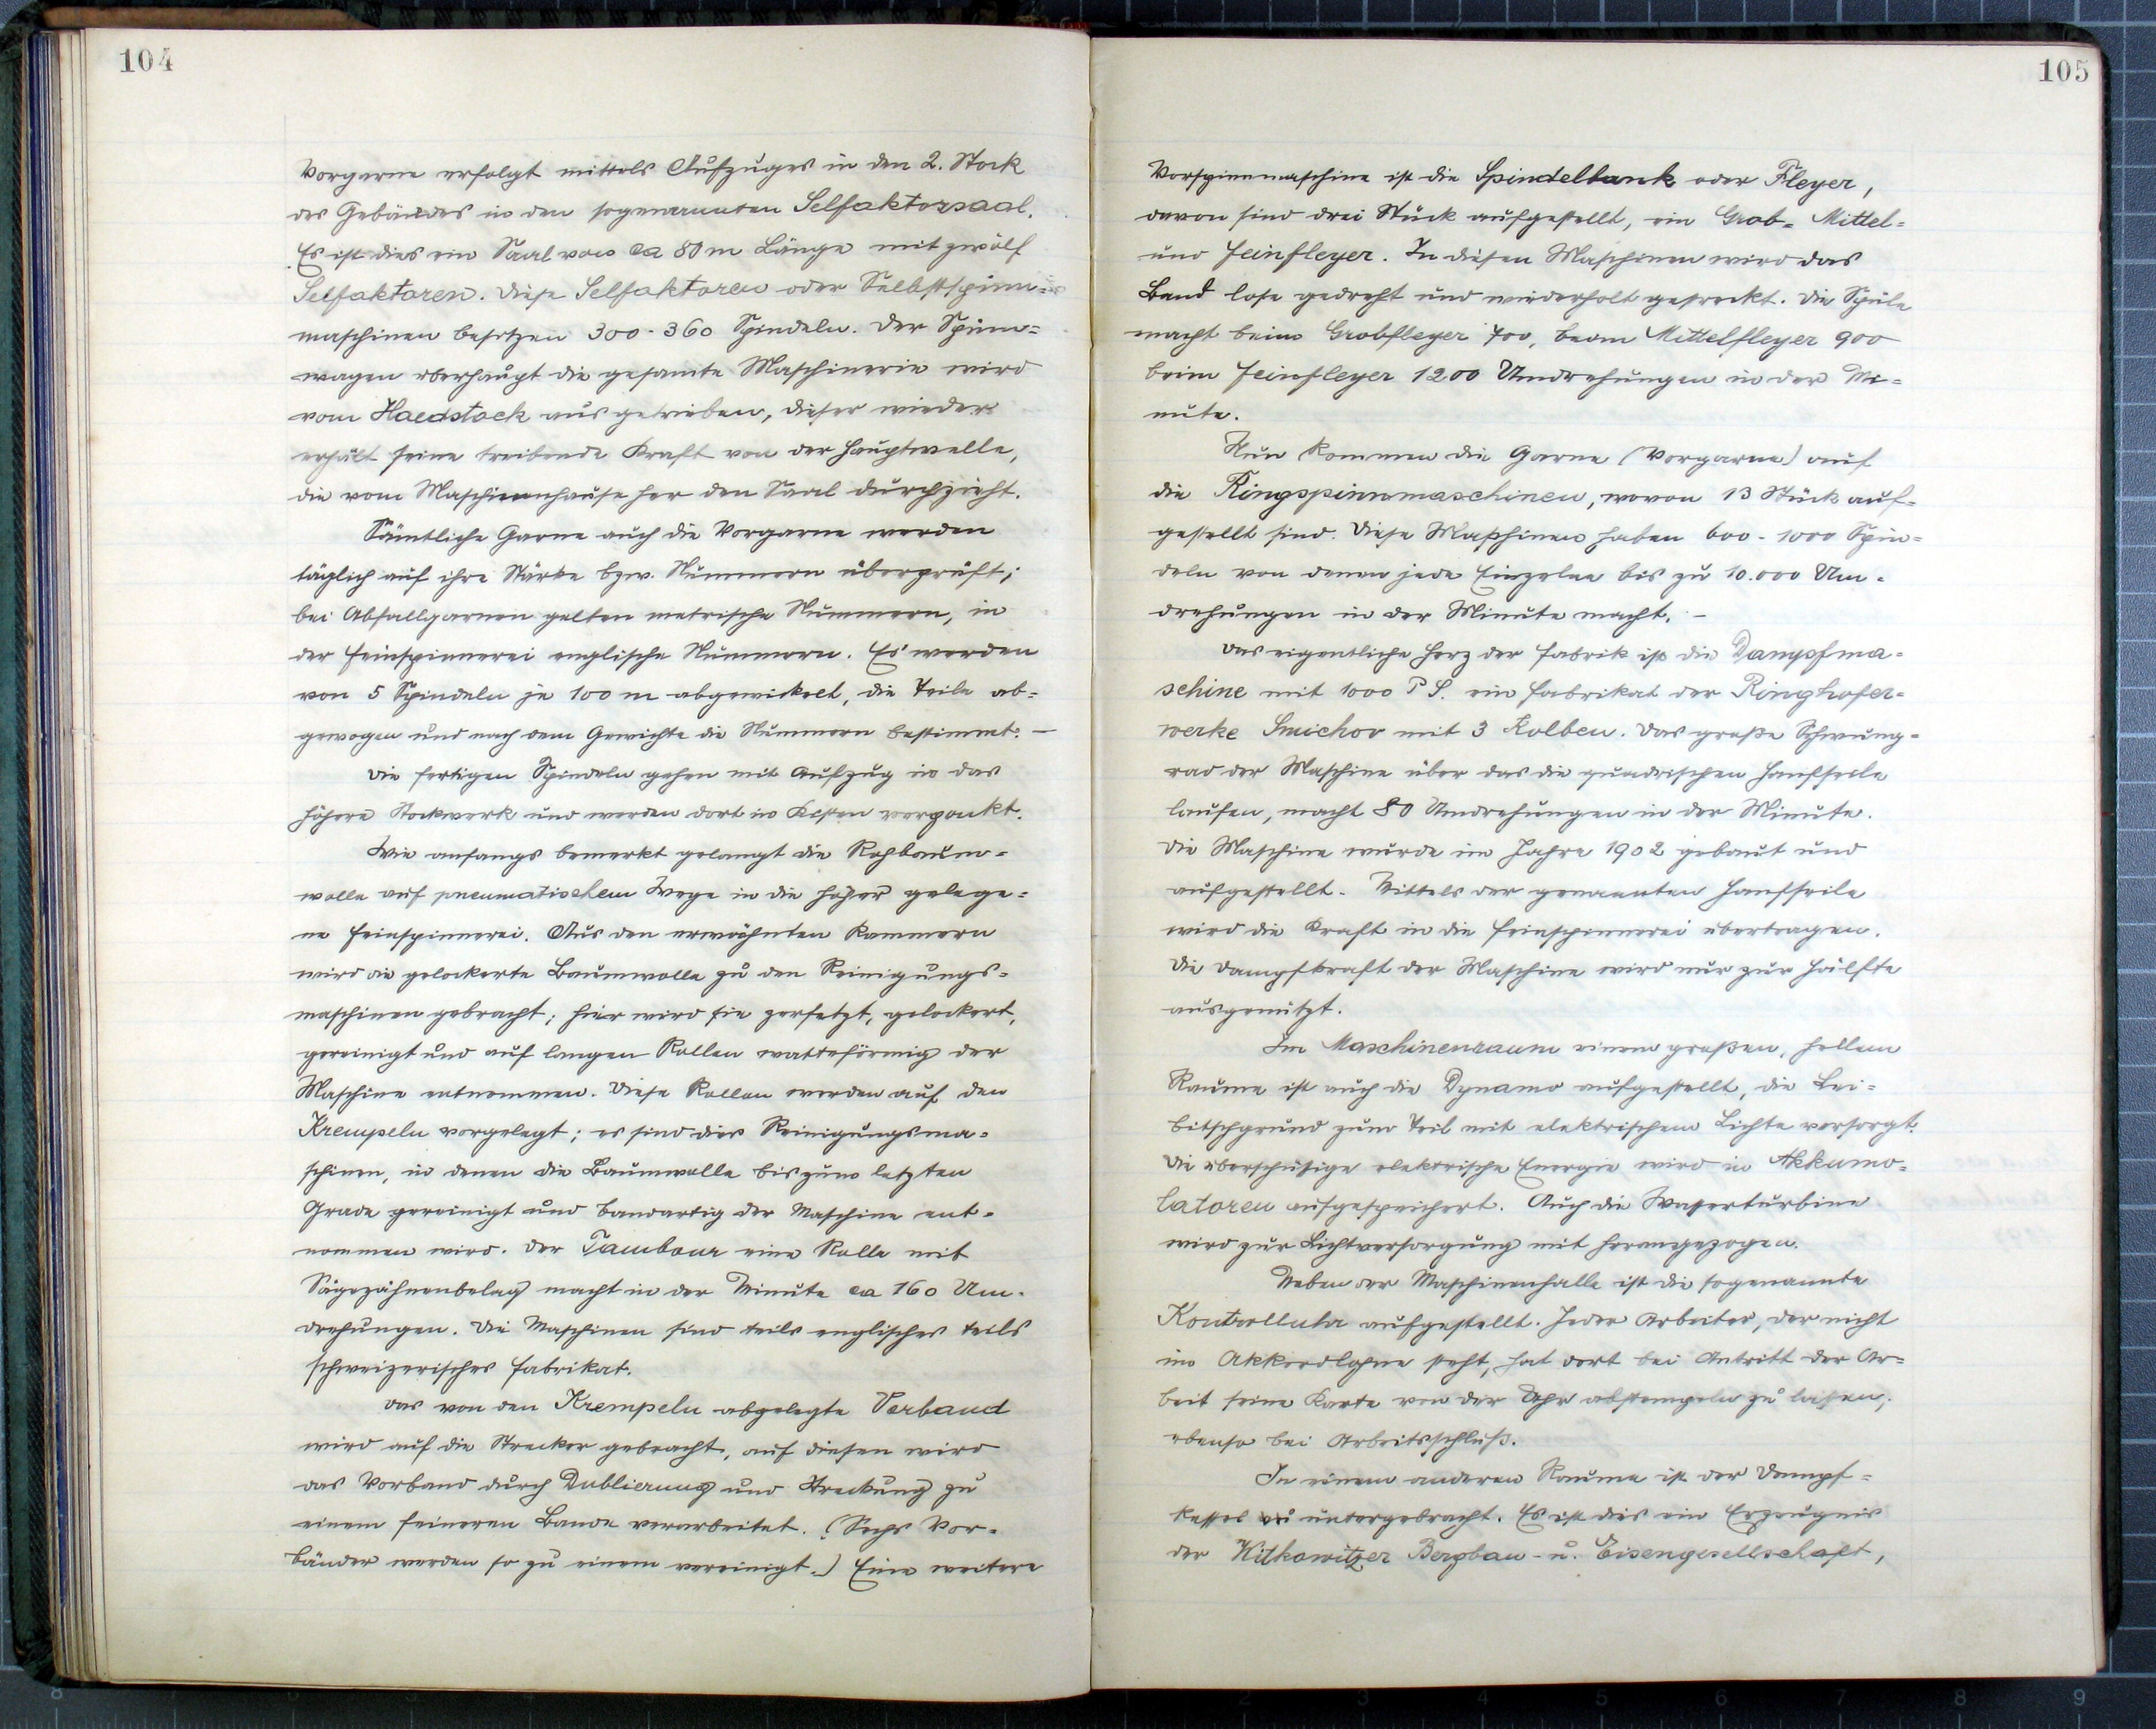 104
Vorgarne erfolgt mittels Aufzuges in den 2. Stock
des Gebäudes in den sogenannten Selfaktorsaal.
Es ist dies ein Saal von ca 80 m Länge mit zwölf
Selfaktoren. Diese Selfaktoren oder Selbstspinn=
maschinen besitzen 300-360 Spindeln. Der Spinn=
wagen überhaupt die gesamte Maschinerie wird
vom Haedstock aus getrieben, dieser wieder
erhält seine treibende Kraft von der Hauptwelle,
die vom Maschinenhause her den Saal durchzieht.
Sämtliche Garne auch die Vorgarne werden
täglich auf ihre Stärke bzw. Nummern überprüft;
bei Abfallgarnen gelten metrische Nummern, in
der Feinspinnerei englische Nummern. Es werden
von 5 Spindeln je 100 m abgewickelt, die Teile ab=
gewogen und nach dem Gewichte die Nummern bestimmt. —
Die fertigen Spindeln gehen mit Aufzug in das
höhere Stockwerk und werden dort in Kisten verpackt.
Wie anfangs bemerkt gelangt die Rohbaum=
wolle auf pneumatischem Wege in die höher gelege=
ne Feinspinnerei. Aus den erwähnten Kammern
wird die gelockerte Baumwolle zu den Reinigungs=
maschinen gebracht; hier wird sie zersetzt, gelockert,
gereinigt und auf langen Rollen watteförmig der
Maschine entnommen. Diese Rollen werden auf den
Krempeln vorgelegt; es sind dies Reinigungsma=
schinen, in denen die Baumwolle bis zum letzten
Grade gereinigt und bandartig der Maschine ent=
nommen wird. Der Tambour eine Rolle mit
Sägezähnenbelag macht in der Minute ca 160 Um=
drehungen. Die Maschinen sind teils englisches teils
schweizerisches Fabrikat.
Das von den Krempeln abgelegte Vorband
wird auf die Strecker gebracht, auf diesen wird
das Vorband durch Dublierung und Streckung zu
einem feineren Bande verarbeitet. (Sechs Vor=
bänder werden so zu einem vereinigt.) Eine weitere
105
Vorspinnmaschine ist die Spindelbank oder Fleyer,
davon sind drei Stück aufgestellt, ein Grob= Mittel=
und Feinfleyer. In diesen Maschinen wird das
Band lose gedreht und wiederholt gestreckt. Die Spule
macht beim Grobfleyer 700, beim Mittelfleyer 900
beim Feinfleyer 1200 Umdrehungen in der Mi=
nute.
Nun kommen die Garne (Vorgarne) auf
die Ringspinnmaschinen, wovon 13 Stück auf=
gestellt sind. Diese Maschinen haben 600-1000 Spin=
deln von denen jede Einzelne bis zu 10.000 Um=
drehungen in der Minute macht. –
Das eigentliche Herz der Fabrik ist die Dampfma=
schine mit 1000 P S. ein Fabrikat der Ringhofer=
werke Smichov mit 3 Kolben. Das große Schwung=
rad der Maschine über das die quadrischen Hanfseile
laufen, macht 80 Umdrehungen in der Minute.
Die Maschine wurde im Jahre 1902 gebaut und
aufgestellt. Mittels der genannten Hanfseile
wird die Kraft in die Feinspinnerei übertragen.
Die Dampfkraft der Maschine wird nur zur Hälfte
ausgenützt.
Im Maschinenraum einem großen, hellem
Raume ist auch die Dynamo aufgestellt, die Lei=
bitschgrund zum Teil mit elektrischem Lichte versorgt.
Die überschüsige elektrische Energie wird in Akkumo=
latoren aufgespeichert. Auch die Wasserturbine
wird zur Lichtversorgung mit herangezogen.
Neben der Maschinenhalle ist die sogenannte
Kontrolluhr aufgestellt. Jeder Arbeiter, der nicht
im Akkordlohne steht, hat dort bei Antritt der Ar=
beit seine Karte von der Uhr abstempeln zu lassen,
ebenso bei Arbeitsschluß.
In einem anderen Raume ist der Dampf=
kessel untergebracht. Es ist dies ein Erzeugnis
der Witkowitzer Bergbau- u. Eisengesellschaft,